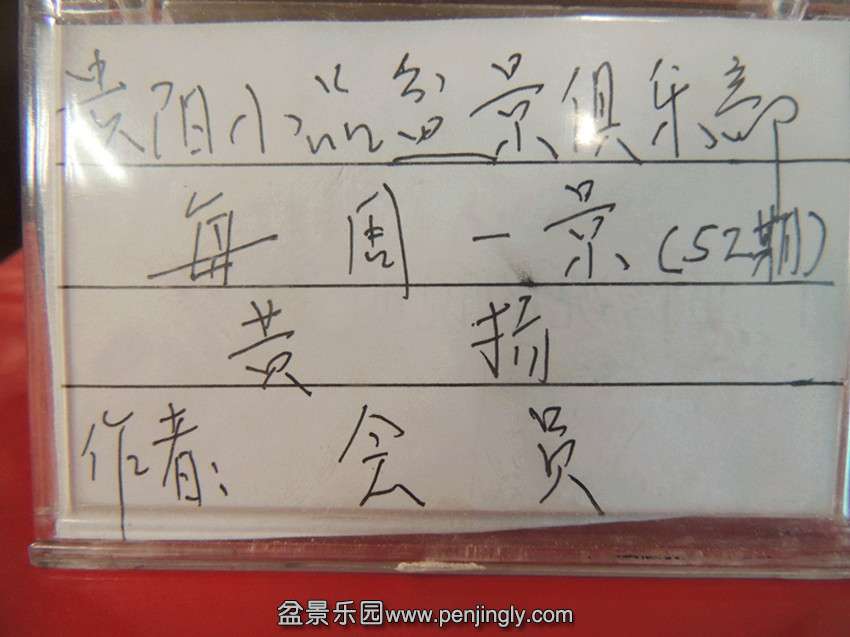 贵阳小品盆景俱乐部
每周一景(52期)
黄扬
作者:会员
盆景乐园www.penjingly.com